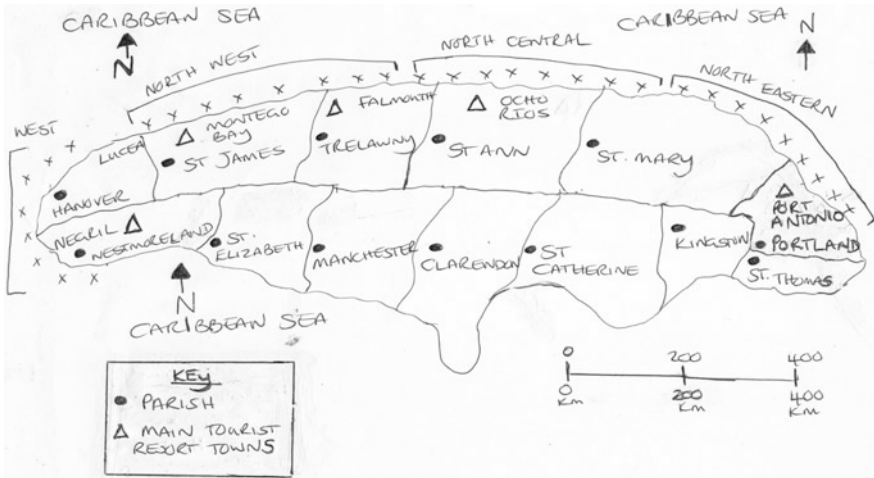 CARIBBEAN SEA
N
CARIBBEAN SEA
N
NORTH WEST
NORTH CENTRAL
NORTH EASTERN
WEST
LUCEA
HANOVER
MONTEGO
BAY
ST JAMES
FALMOUTH
TRELAWNY
OCHO
RIOS
ST ANN
ST. MARY
NEGRIL
WESTMORELAND
ST.
ELIZABETH
MANCHESTER
CLARENDON
ST
CATHERINE
KINGSTON
PORT
ANTONIO
PORTLAND
ST. THOMAS
N
CARIBBEAN SEA
KEY
PARISH
MAIN TOURIST
RESORT TOWNS
0 200 400
0 200 400
Km Km Km